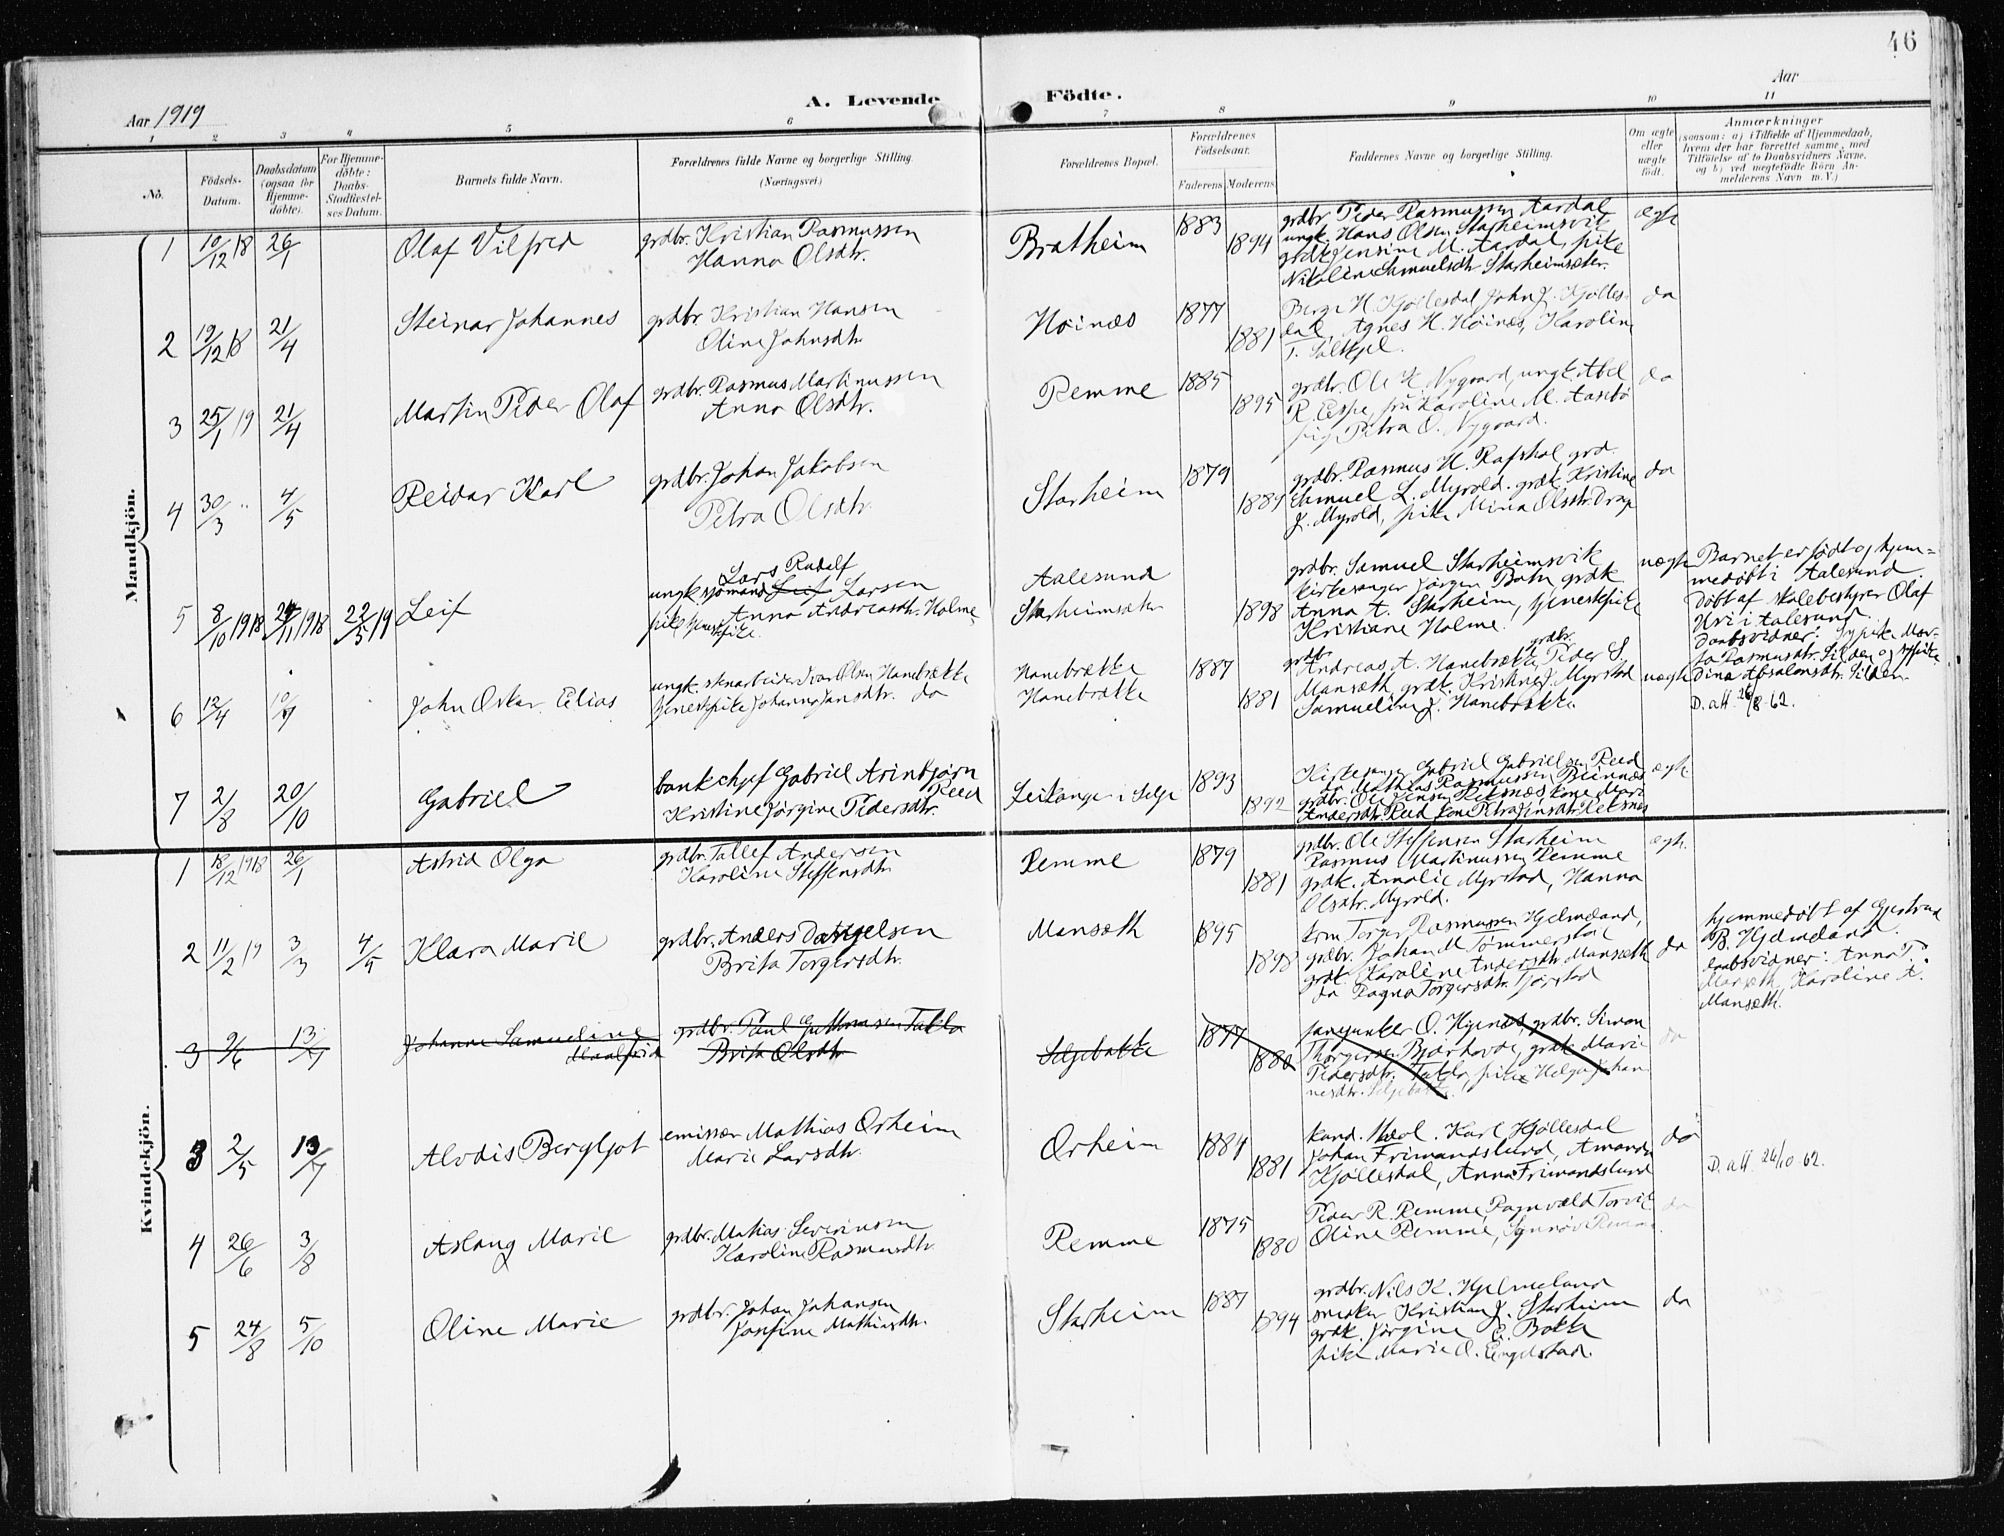 46
Aar 1919
A. Levende
Födte.
Aar
1 2 3 4 5 6 7 8 9 10 11
No.
Födsels-Datum.
Daabsdatum (ogsaa for Hjemme-döbte).
For Hjemme-döbte: Daabs-Stadfæstel-ses Datum.
Barnets fulde Navn.
Forældrenes fulde Navne og borgerlige Stilling.
(Næringsvei.)
Forældrenes Bopæl.
Forældrenes Födselsaar.
Faderens Moderens
Faddernes Navne og borgerlige Stilling.
Om ægte eller uægte födt.
Anmærkninger
(saasom: a) i Tilfælde af Hjemmedaab,
hvem der har forrettet samme, med
Tilföielse af to Daabsvidners Navne,
og b) ved uægtefödte Börn An-
melderens Navn m. V.)
Mandkjön.
1 10/12 18 26/1 Olaf Vilfred grdbr. Kristian Rasmussen
Hanna Olsdtr.
Bratheim 1883 1894
grdbr. Peder Rasmussen Aardal
ungk. Hans Olsen Starheimsvik
grdk Jensine M. Aardal, pike
Nikoline Samuelsdtr. Starheimsæter.
ægte
2 19/12 18 21/4 Steinar Johannes grdbr. Kristian Hansen
Oline Johnsdtr.
Hoinæs 1877 1881
Berge H. Kjöllesdal John J. Kjölles-
dal, Agnes H. Höinæs, Karoline
T.
da
3 25/1 19 21/4 Martin Peder Olaf grdbr. Rasmus Martinussen
Anna Olsdtr.
Remme 1885 1895
grdbr. Ole K. Nygaard, ungk. Abel
R. Espe, fru Karoline M. Aasebö
pig Petra O. Nygaard.
da
4 30/3 " 4/5 Reidar Karl grdbr. Johan Jakobsen
Petra Olsdtr.
Starheim 1879 1889
grdbr. Rasmus H. Rafshol grd.
Samuel L. Myrold. grdk Kristine
J. Myrold, pike Mina Olsdtr. Drage
da
5 8/10 1918 24/11 1918 22/5 19 Leif
Lars Rudolf
ungk sjömand Leif Larsen
pike tjenestpike Anna Andreasdtr. Holme
Aalesund
Starheimsæter 1898
grdbr. Samuel Starheimsvik
kirkesanger Jörgen Bohn grdk
Anna A. Starheim, tjenestpike
Kristiane Holme.
uægte
Barnet er födt og hjem-
medöbt i Aalesund
döbt af skolebestyrer Olaf
i Aalesund.
Daabsvidner: Sypike Mar-
ta Rasmusdtr. Silden og sypike
Dina Absalonsdtr. Silden.
6 12/4 John Oskar Elias
ungk. stenarbeider Ivar Olsen Hanebrække
tjenestpike Johanna Jansdtr. do
Hanebrække
Hanebrække 1887 1881
grdbr. grdbr.
Andreas A. Hanebrække, Peder S.
Mansæth, grdk. Kristine J. Myrstad
Samueline J. Hanebrække.
uægte
D. att. 26/8 62.
7 2/8 20/10 Gabriel
bankchef Gabriel Arinbjörn Reed
Kristine Jörgine Pedersdtr.
Leikanger i Selje 1893 1892
Kirkesanger Gabriel Gabrielsen Reed
do Mathias Rasmussen
grdbr. Ole Jensen Reksnæs kone Mari
Andersdtr. Reed kone Petra Jensdtr. Reksnæs
ægte
Kvindekjön.
1 18/12 1918 26/1 Astrid Olga grdbr. Tallef Andersen
Karoline Steffensdtr.
Remme 1879 1881
grdbr. Ole Steffensen Starheim
Rasmus Martinussen Remme
grdk. Amalie Myrstad, Hanna
Olsdtr. Myrold.
ægte
2 11/2 19 3/3 4/5 Klara Marie grdbr. Anders Danielsen
Brita Torgersdtr.
Mansæth 1895 1898
Torger Rasmussen Hjelmeland,
grdbr. Johan M. Tömmerstøl
grdk. Karoline Andersdtr. Mansæth
do Ragna Torgersdtr.
da
hjemmedöbt af Gjertrud
B. Hjelmeland
Daabsvidner: Anna T.
Mansæth, Karoline A.
Mansæth.
3 9/6 13/7 Johanne Samueline
grdbr. Paul Guttormsen Takla
Brita Olsdtr
Seljebakke 1877 1880
O. Hjenæs, grdbr. Simon
Thorgersen Bjørhovde, grdk Marie
Pedersdtr. Takle, pike Helga Johan-
nesdtr. Seljebakke.
da
3 2/5 13/7 Alvdis Bergljot emissær Mathias Orheim
Marie Larsdtr.
Orheim 1884 1881
kand. theol. Karl Kjöllesdal
Johan Frimandslund, Amanda
Kjöllesdal, Anna Frimandslund
da
D. att. 24/10 62.
4 26/6 3/8 Aslaug Marie grdbr. Mathias Severinsen
Karoline Rasmusdtr.
Remme 1875 1880
Peder R. Remme, Ragnvald Torvik
Oline Remme, Synnöve Remme
da
5 24/8 5/10 Oline Marie grdbr. Johan Johansen
Josefine Mathiasdtr.
Starheim 1887 1894
grdbr. Nils K. Hjelmeland
snekker Kristian J. Starheim
grdk. Jörgine E. Bakke
pike Marie O. Engelstad.
da